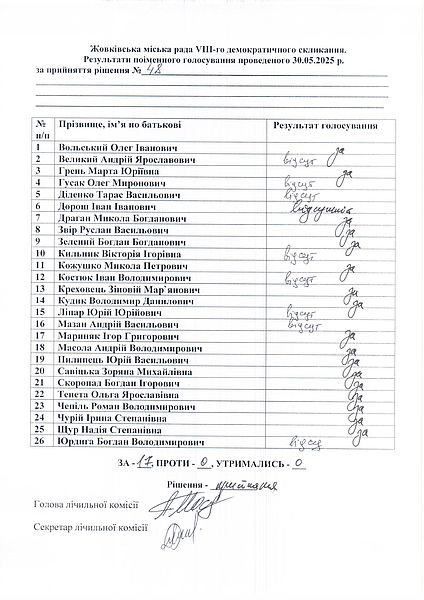 Жовківська міська рада VIII-го демократичного скликання.
Результати поіменного голосування проведеного 30.05.2025 р.
за прийняття рішення № 48
№ п/п Прізвище, ім’я по батькові Результат голосування
1 Вольський Олег Іванович за
2 Великий Андрій Ярославович відсут
3 Грень Марта Юріївна за
4 Гусак Олег Миронович відсут
5 Діденко Тарас Васильович відсут
6 Дорош Іван Іванович відсутній
7 Драган Микола Богданович за
8 Звір Руслан Васильович за
9 Зелений Богдан Богданович за
10 Кильник Вікторія Ігорівна відсут
11 Кожушко Микола Петрович за
12 Костюк Іван Володимирович відсут
13 Креховець Зіновій Мар`янович за
14 Кудик Володимир Данилович за
15 Ліпар Юрій Юрійович відсут
16 Мазан Андрій Васильович відсут
17 Мариняк Ігор Григорович за
18 Масола Андрій Володимирович за
19 Пилипець Юрій Васильович за
20 Савіцька Зоряна Михайлівна за
21 Скоропад Богдан Ігорович за
22 Тенета Ольга Ярославівна за
23 Чепіль Роман Володимирович за
24 Чурій Ірина Степанівна за
25 Щур Надія Степанівна за
26 Юрдига Богдан Володимирович відсут
ЗА - 17, ПРОТИ - 0, УТРИМАЛИСЬ - 0
Рішення - прийняте
Голова лічильної комісії
Секретар лічильної комісії